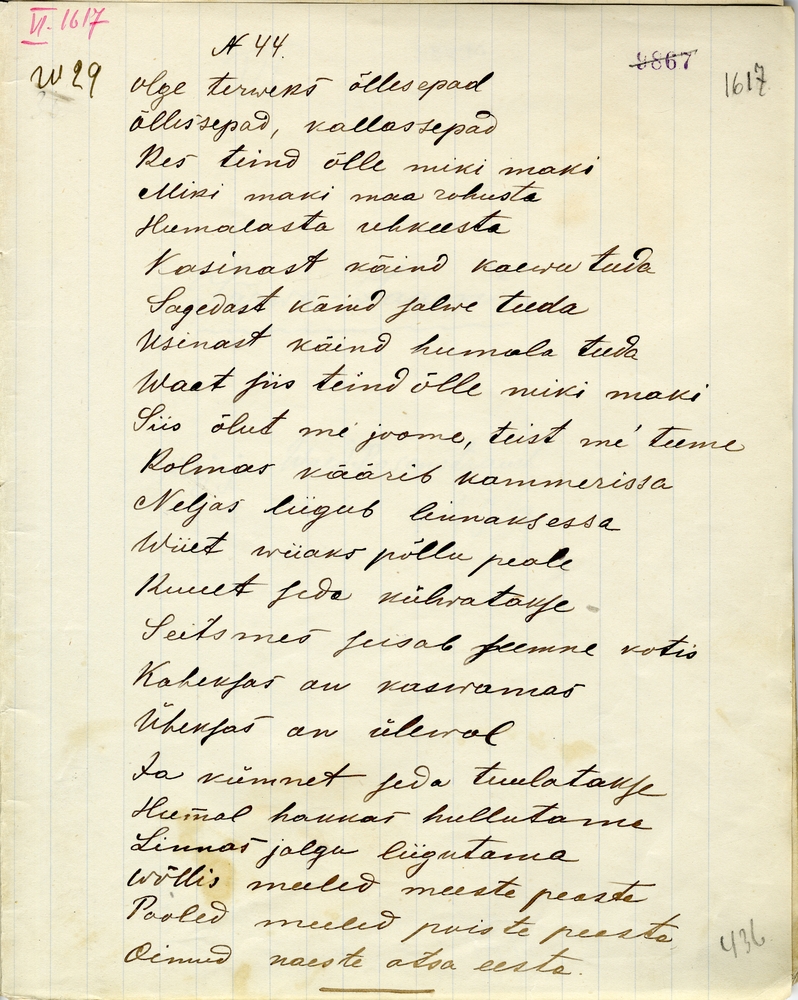 VI. 1617
N 44.
W 29
9867
1617
Olge terweks õllesepad
õllessepad, kallassepad
Kes teind õlle miki maki
Miki maki maa rohusta
Humalasta uhkeesta
Kasinast käind kaewu teeda
Sagedast käind salwe teeda
Usinast käind humala teeda
Waat siis teind õlle miki maki
Siis õlut me' joome, teist me' teeme
Kolmas käärib kammerissa
Neljas liigub linnaksessa
Wiiet wiiaks põllu peale
Kuuet seda külwatakse
Seitsmes seisab seemne kotis
Kaheksas on kaswamas
Üheksas on ülewal
Ja kümnet seda tuulatakse
Humal hakkas hullutama
Linnas jalgu liigutama
Wõllis meeled meeste peaste
Pooled meeled poiste peesta
Oimud naeste otsa eesta.
436